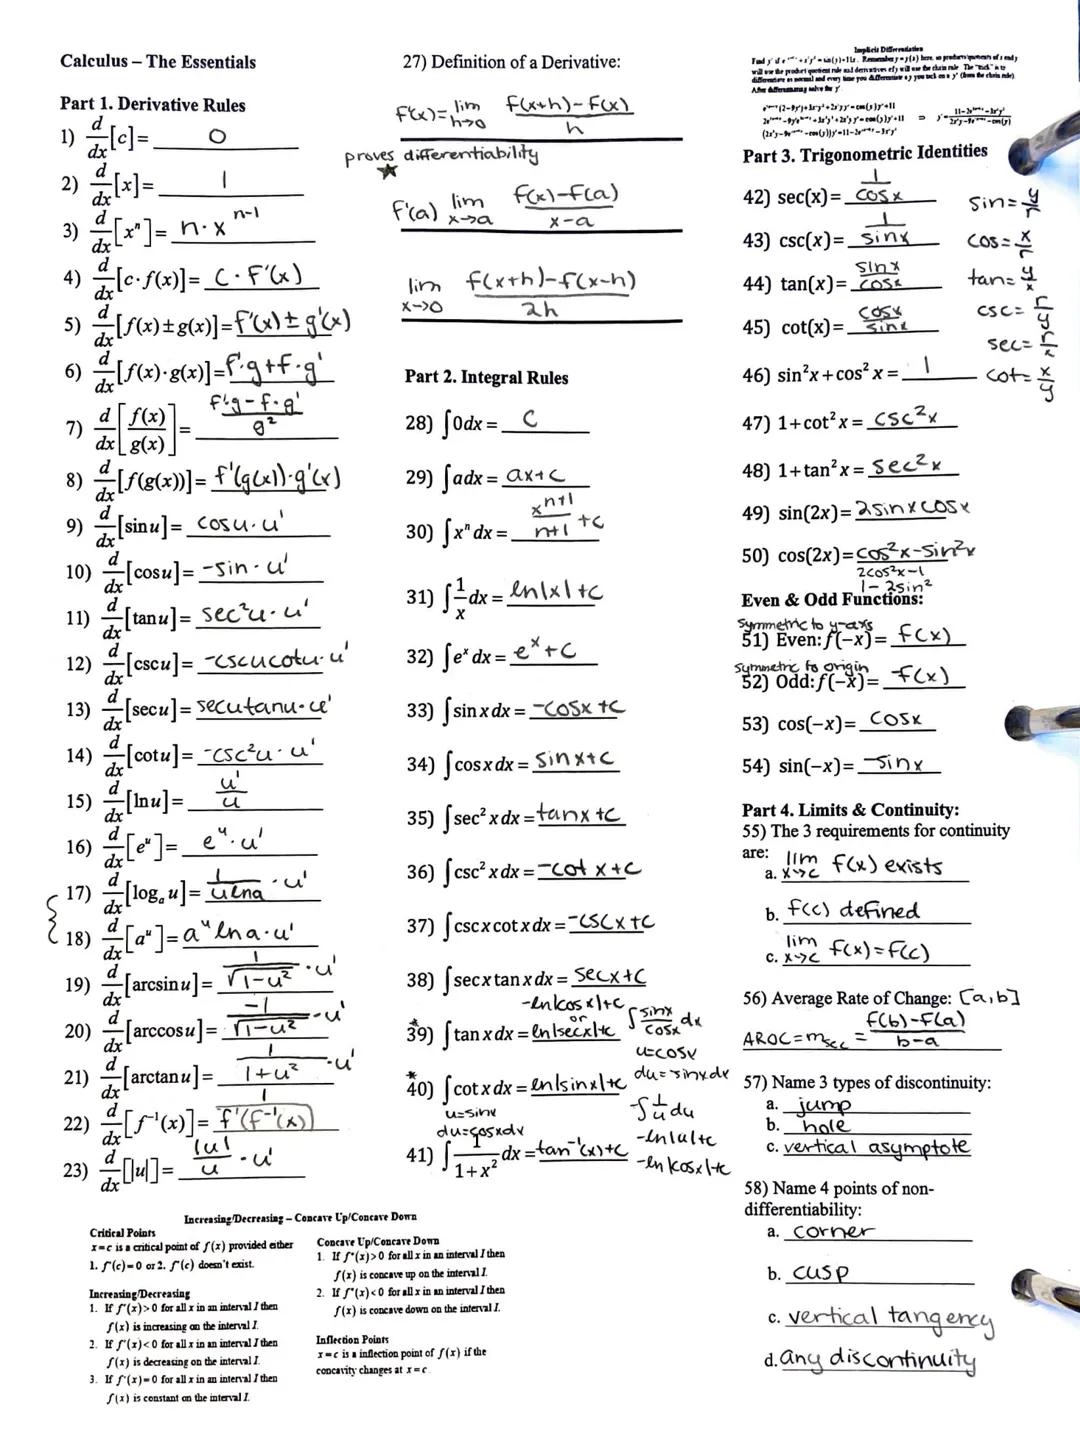 Calculus – The Essentials
Part 1. Derivative Rules
1) d/dx[c]= 0
2) d/dx[x]= 1
3) d/dx[xⁿ]= n·x^(n-1)
4) d/dx[c·f(x)]= C·F'(x)
5) d/dx[f(x)±g(x)]=f'(x)±g'(x)
6) d/dx[f(x)·g(x)]=f'·g+f·g'
7) d/dx[f(x)/g(x)]= (f'g-f·g')/g²
8) d/dx[f(g(x))]= f'(g(x))·g'(x)
9) d/dx[sin u]= cosu·u'
10) d/dx[cos u]= -sin·u'
11) d/dx[tan u]= sec²u·u'
12) d/dx[csc u]= -cscucotu·u'
13) d/dx[sec u]= secutanu·u'
14) d/dx[cot u]= -csc²u·u'
15) d/dx[ln u]= u'/u
16) d/dx[eᵘ]= eᵘ·u'
17) d/dx[logₐ u]= 1/(u lna)·u'
18) d/dx[aᵘ]=aᵘlna·u'
19) d/dx[arcsin u]= 1/√(1-u²)·u'
20) d/dx[arccos u]= -1/√(1-u²)·u'
21) d/dx[arctan u]= 1/(1+u²)·u'
22) d/dx[f⁻¹(x)]= 1/f'(f⁻¹(x))
23) d/dx[|u|]= |u|/u·u'
27) Definition of a Derivative:
f'(x)=lim h->0 (f(x+h)-F(x))/h
proves differentiability
★
f'(a) lim x->a (f(x)-f(a))/(x-a)
lim x->0 (f(x+h)-f(x-h))/2h
Part 2. Integral Rules
28) ∫0dx = C
29) ∫adx = ax+C
30) ∫xⁿdx = x^(n+1)/(n+1) +C
31) ∫1/x dx = ln|x|+C
32) ∫eˣdx = eˣ+C
33) ∫sin x dx = -cosx +C
34) ∫cos x dx = sinx+C
35) ∫sec² x dx =tanx +C
36) ∫csc² x dx =-cot x +C
37) ∫csc x cot x dx =-cscx+C
38) ∫sec x tan x dx = secx+C
-ln|cosx|+C
or
*39) ∫tan x dx = ln|secx|+C
∫sinx/cosx dx
u=cosx
du=-sinxdx
*40) ∫cot x dx = ln|sinx|+C
u=sinx
du=cosxdx
-∫1/u du
-ln|u|+c
-ln|cosx|+c
41) ∫1/(1+x²) dx =tan⁻¹(x)+C
Implicit Differentiation
After differentiating solve for y'.
Part 3. Trigonometric Identities
42) sec(x)= 1/cosx
43) csc(x)= 1/sinx
44) tan(x)= sinx/cosx
45) cot(x)= cosx/sinx
sin=y/r
cos=x/r
tan=y/x
csc=r/y
sec=r/x
cot=x/y
46) sin²x+cos²x= 1
47) 1+cot²x= csc²x
48) 1+tan²x= sec²x
49) sin(2x)=2sinxcosx
50) cos(2x)=cos²x-sin²x
2cos²x-1
1-2sin²
Even & Odd Functions:
symmetric to y-axis
51) Even: f(-x)= f(x)
symmetric to origin
52) Odd: f(-x)= -f(x)
53) cos(-x)= cosx
54) sin(-x)= -sinx
Part 4. Limits & Continuity:
55) The 3 requirements for continuity
are:
a. lim x->c f(x) exists
b. f(c) defined
c. lim x->c f(x)=f(c)
56) Average Rate of Change: [a,b]
AROC=m sec = (f(b)-f(a))/(b-a)
57) Name 3 types of discontinuity:
a. jump
b. hole
c. vertical asymptote
58) Name 4 points of non-
differentiability:
a. corner
b. cusp
c. vertical tangency
d. any discontinuity
Increasing/Decreasing – Concave Up/Concave Down
Critical Points
x=c is a critical point of f(x) provided either
1. f'(c)=0 or 2. f'(c) doesn't exist.
Increasing/Decreasing
1. If f'(x)>0 for all x in an interval I then
f(x) is increasing on the interval I.
2. If f'(x)<0 for all x in an interval I then
f(x) is decreasing on the interval I.
3. If f'(x)=0 for all x in an interval I then
f(x) is constant on the interval I.
Concave Up/Concave Down
1. If f"(x)>0 for all x in an interval I then
f(x) is concave up on the interval I.
2. If f"(x)<0 for all x in an interval I then
f(x) is concave down on the interval I.
Inflection Points
x=c is a inflection point of f(x) if the
concavity changes at x=c.